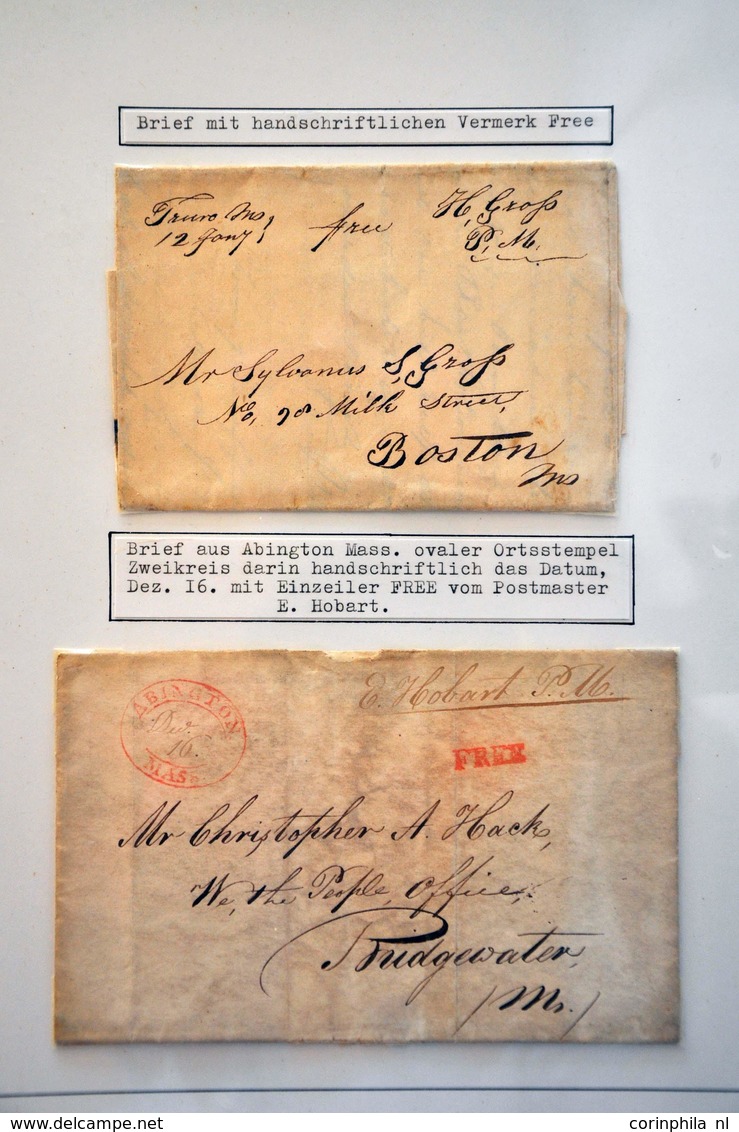 Brief mit handschriftlichen Vermerk Free
Truro Ms;
12 Jany;
free
H, Groſs
P, M.
Mr Sylvanus S, Groſs
No, 98 Milk Street,
Boston
Ms
Brief aus Abington Mass. ovaler Ortsstempel
Zweikreis darin handschriftlich das Datum,
Dez. I6. mit Einzeiler FREE vom Postmaster
E. Hobart.
ABINGTON
Dec.
16.
MASS
E. Hobart. P.M.
FREE
Mr Christopher A. Hack,
We, the People, Office,
Bridgewater,
(Ms.)
corinphila nl